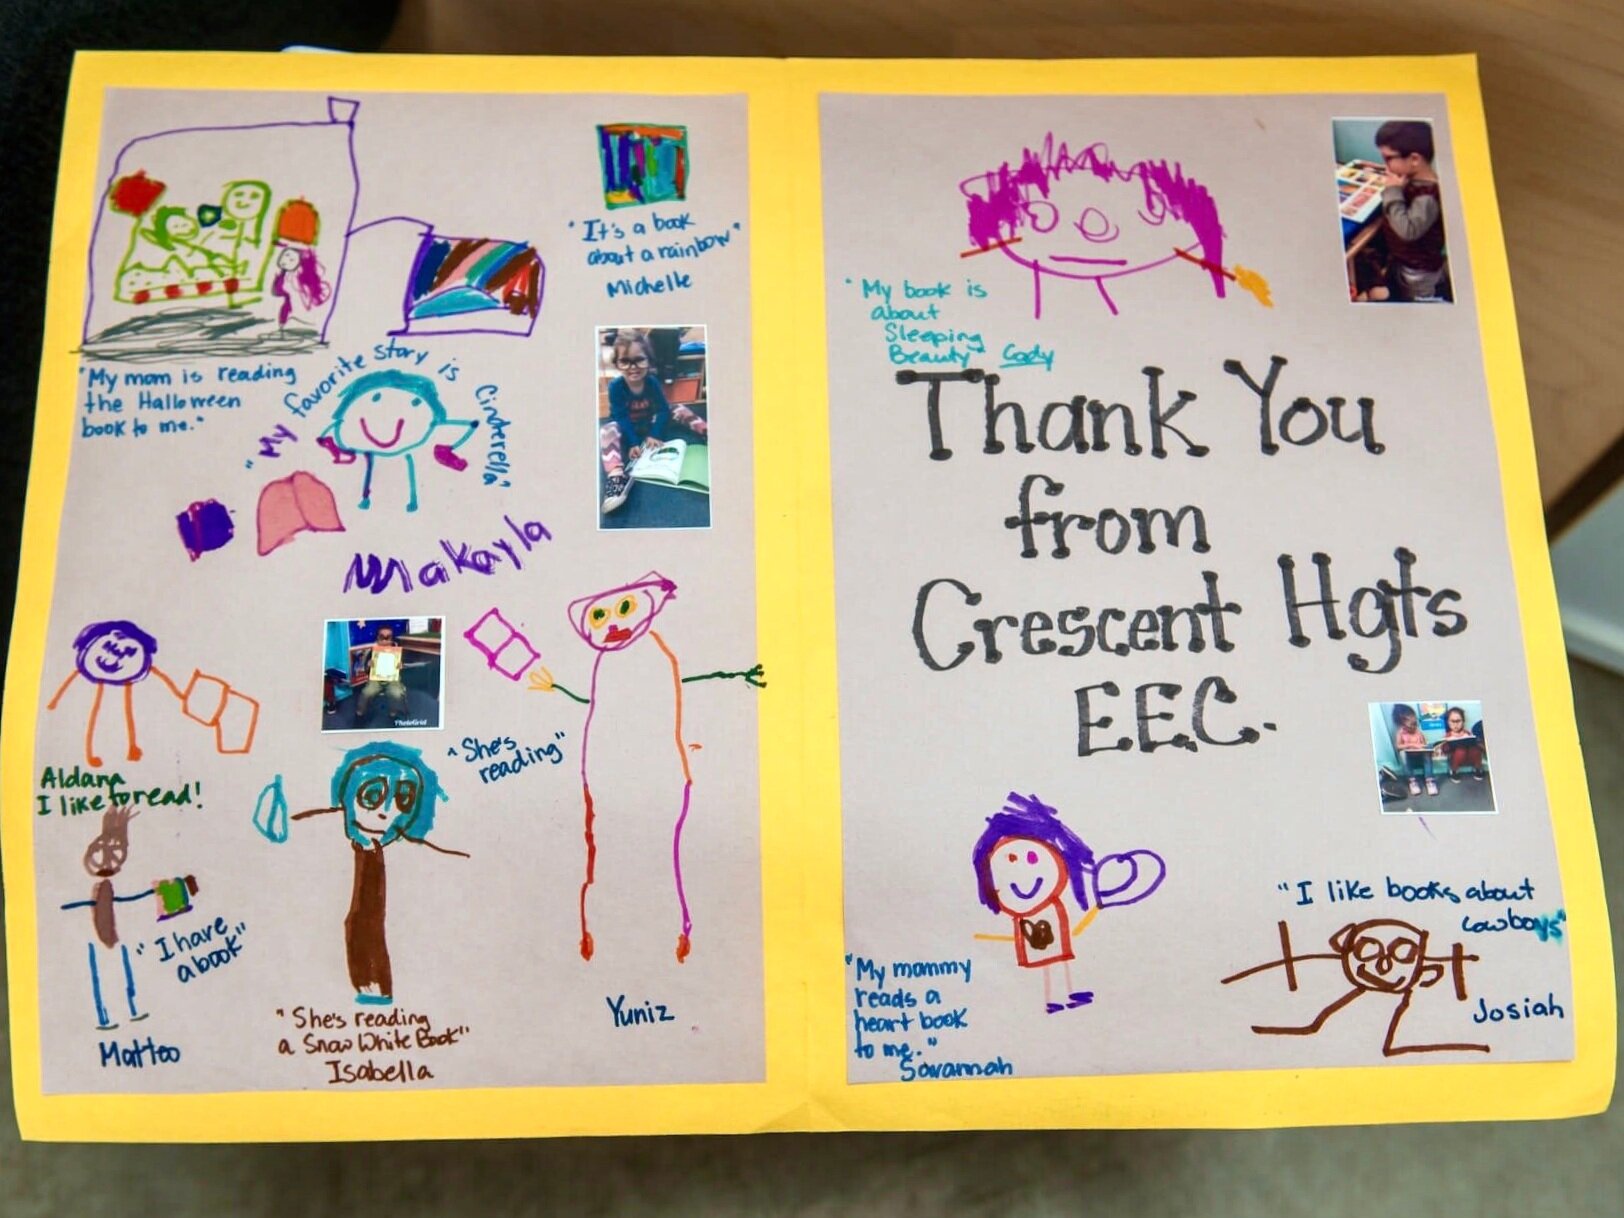 "It's a book
about a rainbow"
Michelle
"My mom is reading
the Halloween
book to me."
"My favorite story is Cinderella"
Makayla
PhotoGrid
"She's
reading"
Yuniz
Aldana
I like to read!
"I have
a book"
Matteo
"She's reading
a Snow White Book"
Isabella
"My book is
about
Sleeping
Beauty" Cody
Thank You
from
Crescent Hgts
EEC.
"My mommy
reads a
heart book
to me."
Savannah
"I like books about
cowboys"
Josiah